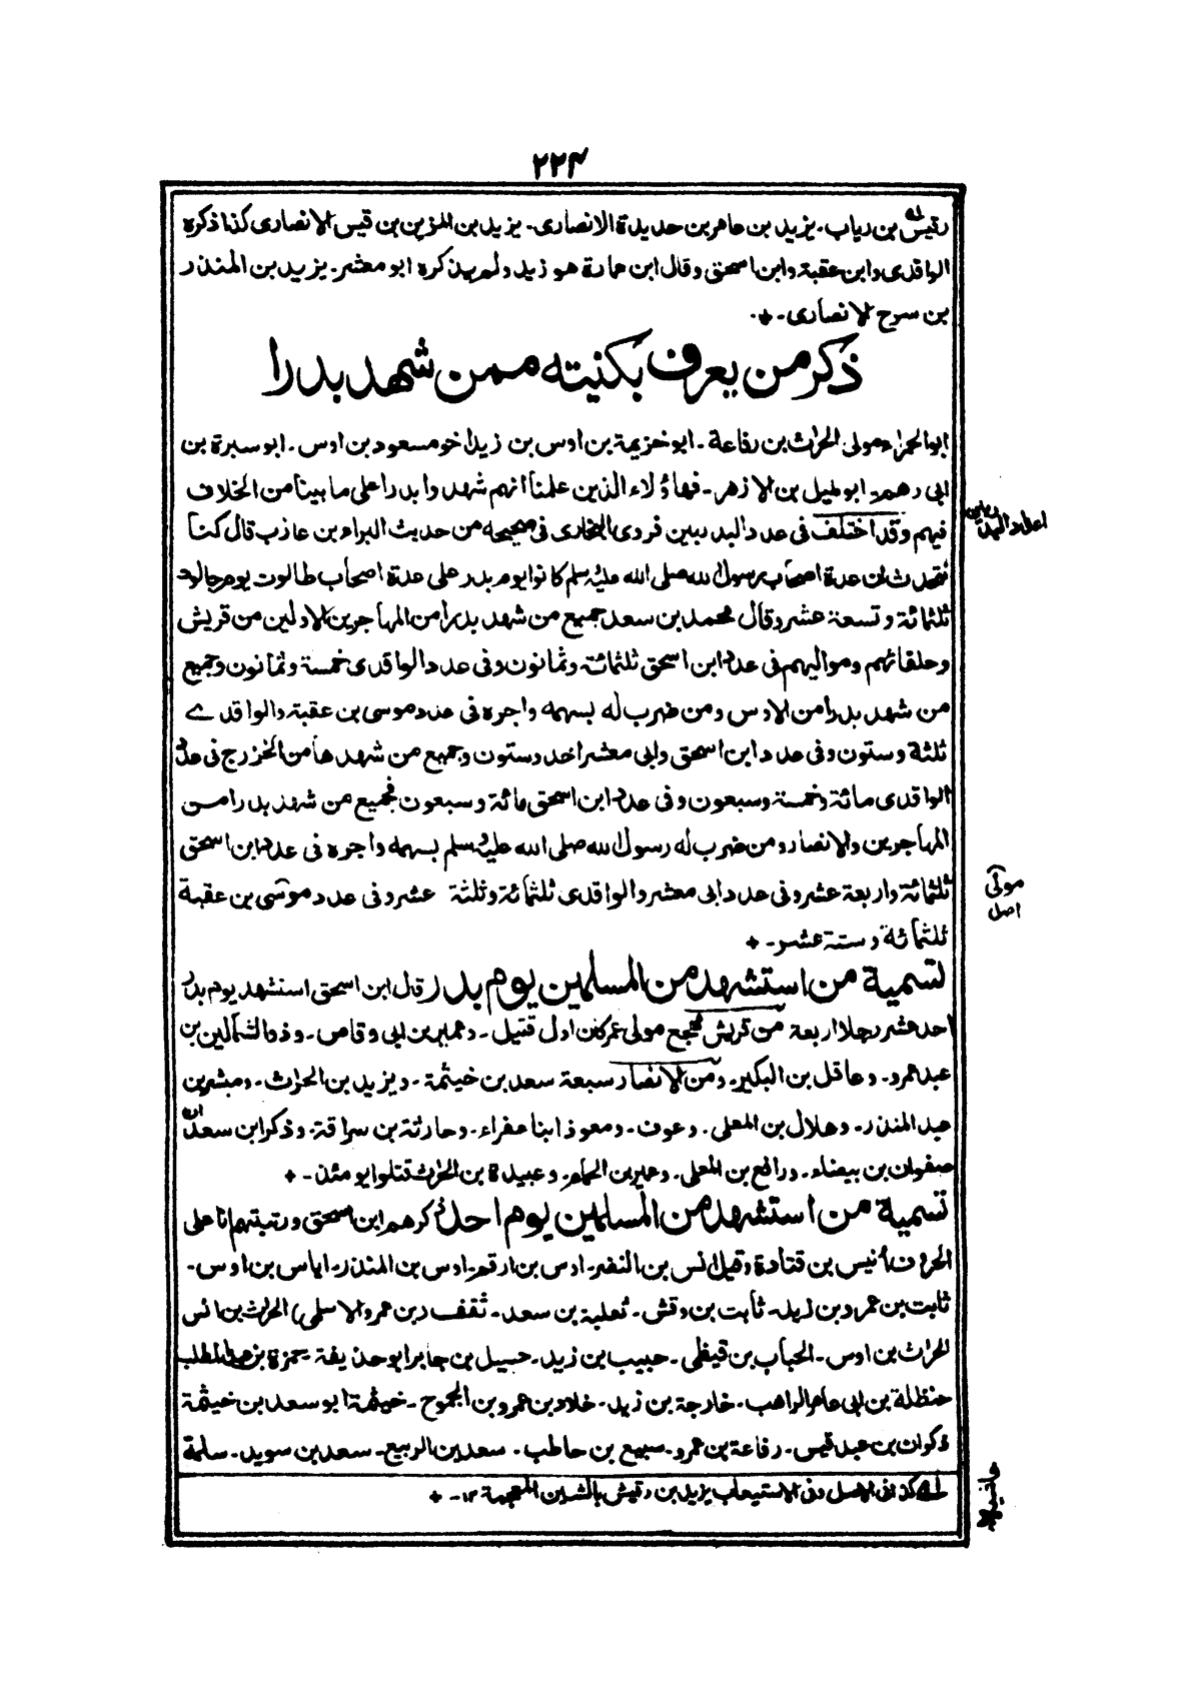 ۲۲۴
رقيس بن رياب۔ يزيد بن عامر بن حديدة الانصارى۔ يزيد بن المزين بن قيس الانصارى كذا ذكره
الواقدى وابن عقبة وابن اسحق وقال ابن عمارة هو زيد ولم يذكره ابو معشر۔ يزيد بن المنذر
بن سرح الانصارى۔
ذكر من يعرف بكنيته ممن شهد بدرا
ابو الحمراء مولى الحرث بن رفاعة۔ ابو خزيمة بن اوس بن زيد اخو مسعود بن اوس۔ ابو سبرة بن
ابى رهم۔ ابو مليل بن الازهر۔ فهاؤلاء الذين علمنا انهم شهدوا بدرا على ما بينا من الخلاف
فيهم وقد اختلف فى عدد البدريين فروى البخارى فى صحيحه من حديث البراء بن عازب قال كنا
نتحدث ان عدة اصحاب رسول الله صلى الله عليه سلم كانوا يوم بدر على عدة اصحاب طالوت يوم جالوت
ثلثمائة وتسعة عشر وقال محمد بن سعد جميع من شهد بدرا من المهاجرين الاولين من قريش
وحلفائهم ومواليهم فى عدد ابن اسحق ثلثمائة وثمانون وفى عدد الواقدى خمسة وثمانون وجميع
من شهد بدرا من الاوس ومن ضرب له بسهمه واجره فى عدد موسى بن عقبة والواقدے
ثلثة وستون وفى عدد ابن اسحق وابى معشر احد وستون وجميع من شهدها من الخزرج فى عدد
الواقدى مائة وخمسة وسبعون وفى عدد ابن اسحق مائة وسبعون فجميع من شهد بدرا من
المهاجرين والانصار ومن ضرب له رسول الله صلى الله عليه سلم بسهمه واجره فى عدد ابن اسحق
ثلثمائة واربعة عشر وفى عدد ابى معشر والواقدى ثلثمائة وثلثة عشر وفى عدد موسى بن عقبة
ثلثمائة وستة عشر۔
تسمية من استشهد من المسلمين يوم بدر قال ابن اسحق استشهد يوم بدر
احد عشر رجلا اربعة من قريش مهجع مولى عمر كان اول قتيل۔ وعمير بن ابى وقاص۔ وذو الشمالين بن
عبد عمرو۔ وعاقل بن البكير۔ ومن الانصار سبعة سعد بن خيثمة۔ ويزيد بن الحرث۔ ومبشر بن
عبد المنذر۔ وهلال بن المعلى۔ وعوف۔ ومعوذ ابنا عفراء۔ وحارثة بن سراقة۔ وذكر ابن سعد ان
صفوان بن بيضاء۔ ورافع بن المعلى۔ وعمير بن الحمام۔ وعبيدة بن الحرث قتلوا يومئذ۔
تسمية من استشهد من المسلمين يوم احد ذكرهم ابن اسحق ورتبتهم انا على
الحروف انيس بن قتادة وقيل انس بن النضر۔ اوس بن ارقم۔ اوس بن المنذر۔ اياس بن اوس۔
ثابت بن عمرو بن زيد۔ ثابت بن وقش۔ ثعلبة بن سعد۔ ثقف (بن عمرو الاسلمى) الحرث بن انس
الحرث بن اوس۔ الحباب بن قيظى۔ حبيب بن زيد۔ حسيل بن جابر ابو حذيفة۔ حمزة بن عبد المطلب
حنظلة بن ابى عامر الراهب۔ خارجة بن زيد۔ خلاد بن عمرو بن الجموح۔ خيثمة ابو سعد بن خيثمة
ذكوان بن عبد قيس۔ رفاعة بن عمرو۔ سبيع بن حاطب۔ سعد بن الربيع۔ سعد بن سويد۔ سلمة
لـه كذا فى الاصل وفى الاستيعاب يزيد بن رقيش بالشين المعجمة ۱۲۔
اعداد البدريين
موتى
اصل
حاشية